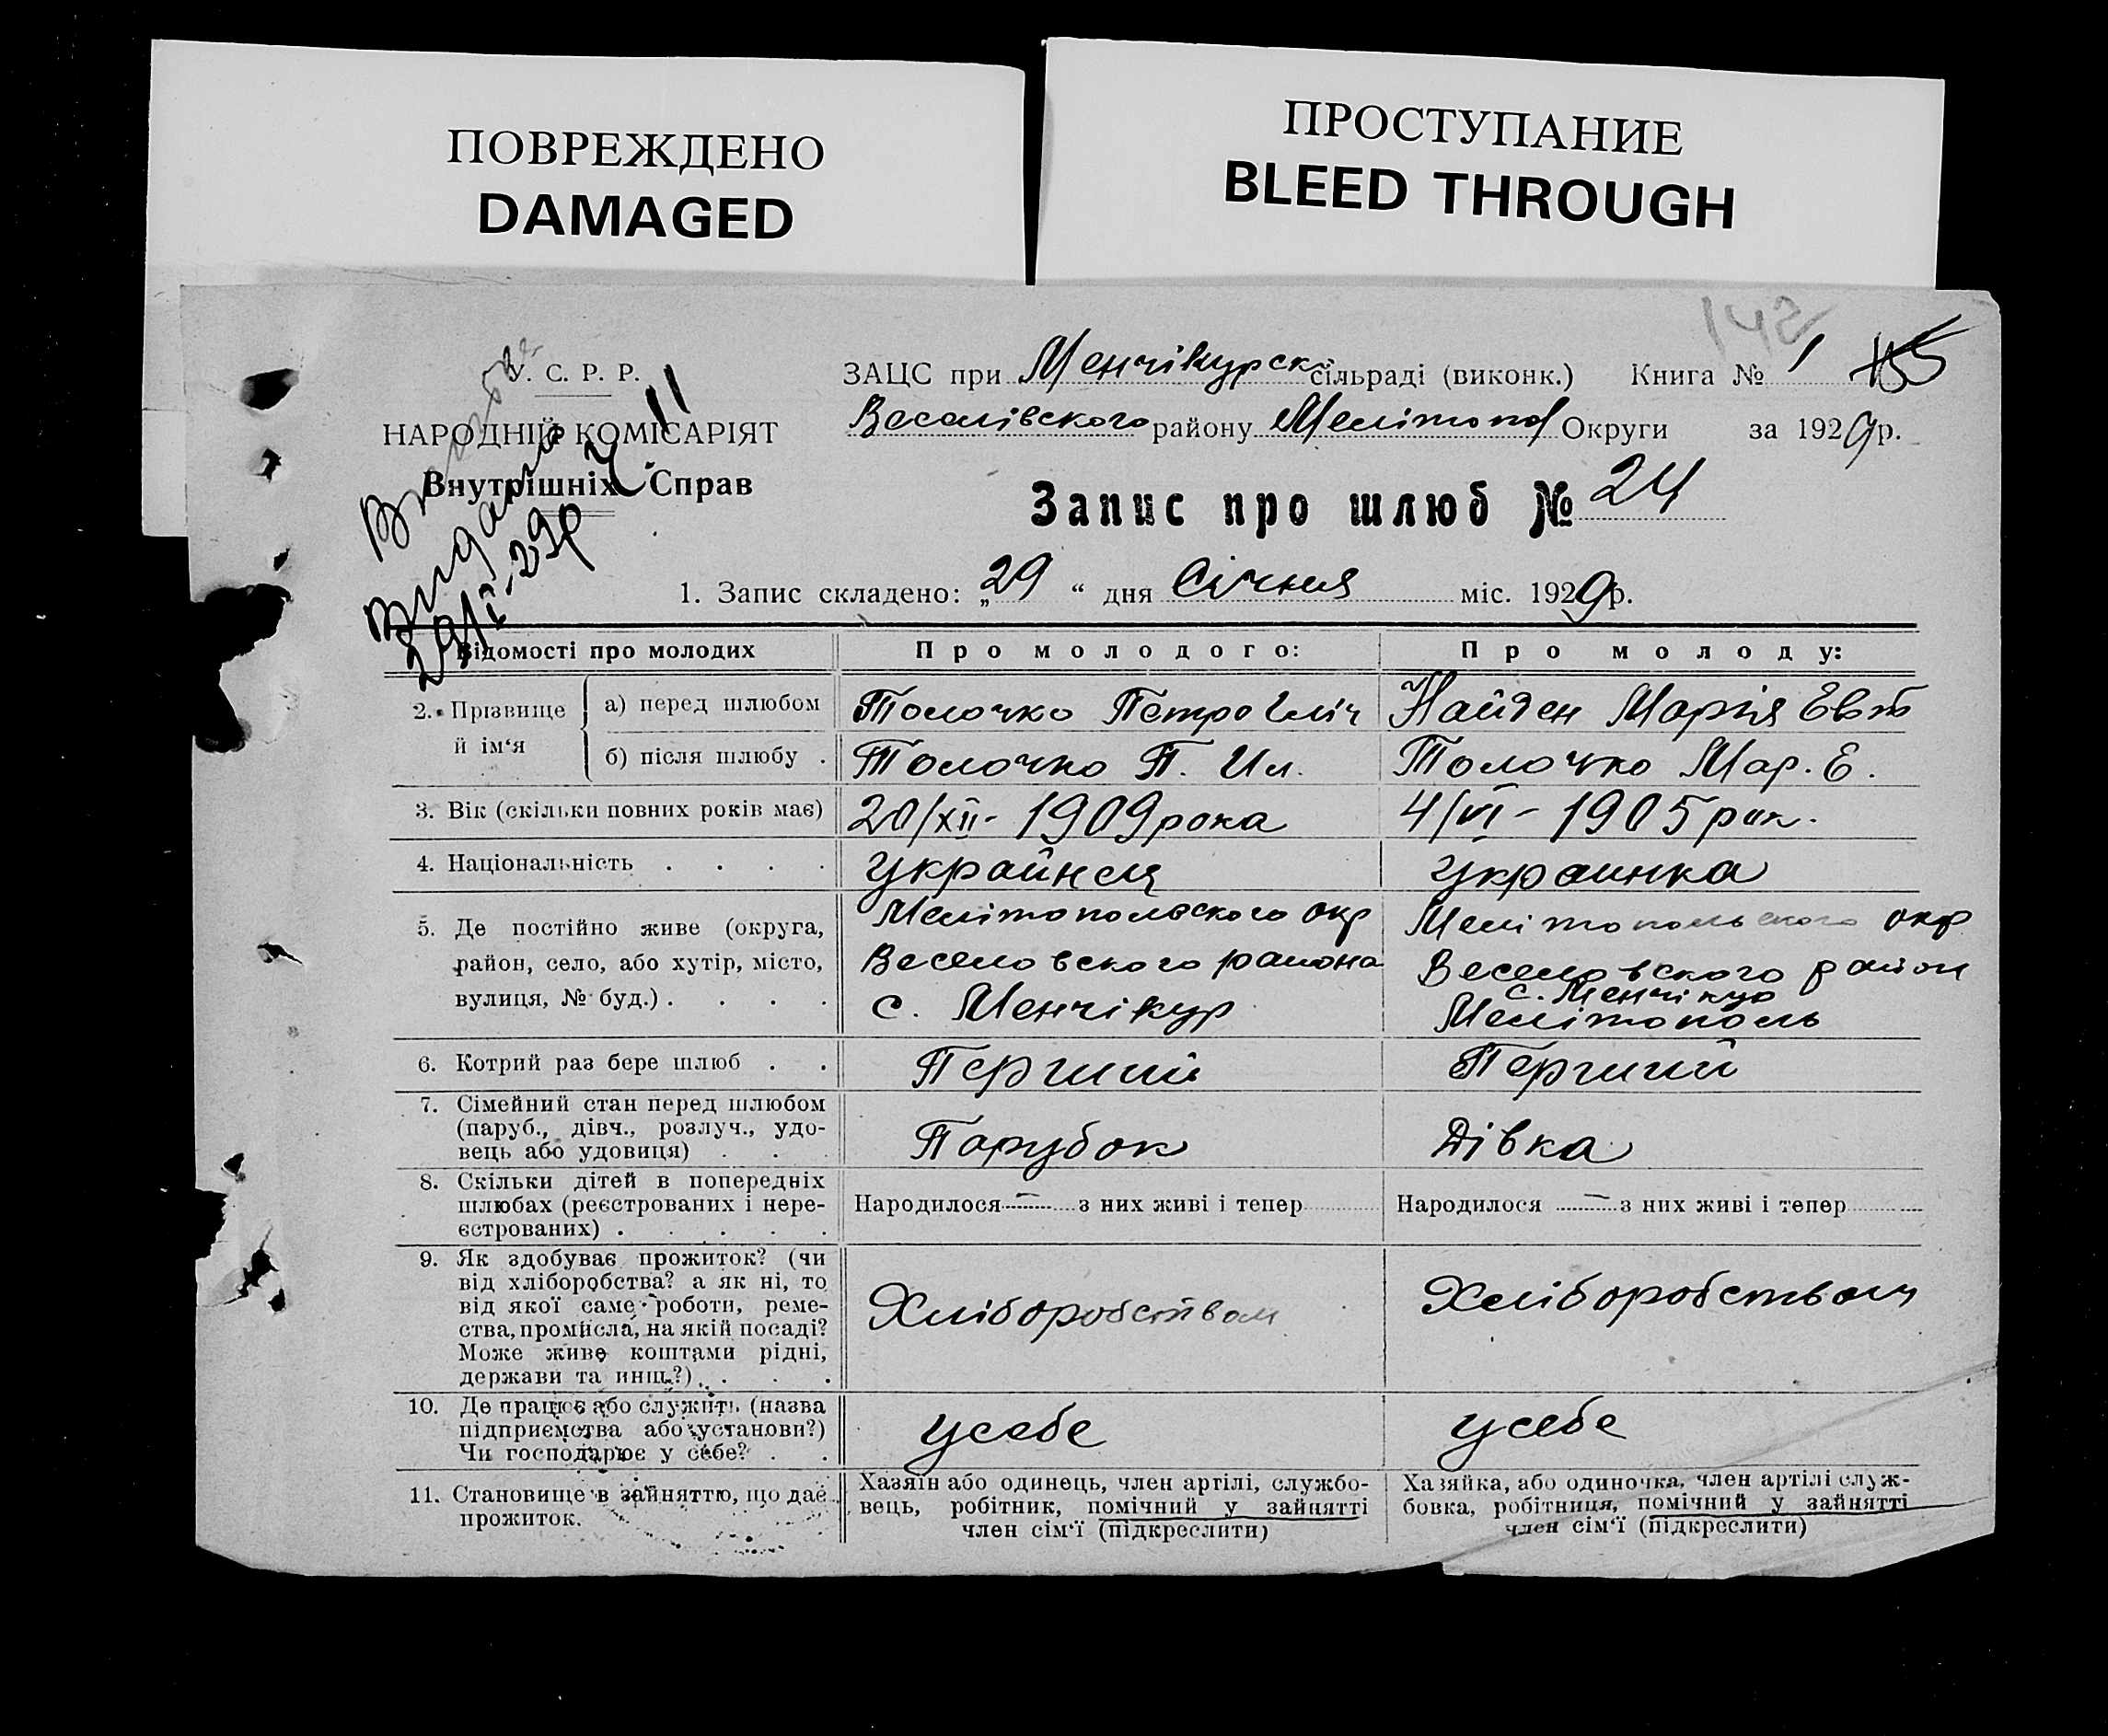 ПОВРЕЖДЕНО
DAMAGED
ПРОСТУПАНИЕ
BLEED THROUGH
142
У. С. Р. Р.
НАРОДНІЙ КОМІСАРІЯТ
Внутрішніх Справ
Видана
29/I-29р
ЗАЦС при Менчікурск сільраді (виконк.) Книга № 1
Веселівского району Мелітопол Округи за 1929р.
Запис про шлюб № 24
1. Запис складено: „29“ дня Січння міс. 1929р.
Відомості про молодих
Про молодого:
Про молоду:
2. Прізвище й ім‘я
а) перед шлюбом
Толочко Петро Іліч
Найден Марія Евт
б) після шлюбу .
Толочко П. Ил.
Толочко Мар. Е.
3. Вік (скільки повних років має)
20/XII - 1909 рока
4/VI - 1905 рок.
4. Національність . . . .
украйнец
украинка
5. Де постійно живе (округа,
район, село, або хутір, місто,
вулиця, № буд.) . . . .
Мелітопольского окр
Веселовского района
с. Менчікур
Мелітопольского окр
Веселовского район
с. Менчікур
Мелітополь
6. Котрий раз бере шлюб . .
Перший
Перший
7. Сімейний стан перед шлюбом
(паруб., дівч., розлуч., удо-
вець або удовиця) . .
Парубок
Дівка
8. Скільки дітей в попередніх
шлюбах (реєстрованих і нере-
єстрованих) . . . . .
Народилося — з них живі і тепер
Народилося — з них живі і тепер
9. Як здобуває прожиток? (чи
від хліборобства? а як ні, то
від якої саме роботи, реме-
ства, промисла, на якій посаді?
Може живе коштами рідні,
держави та инш.?) . . .
Хліборобством
Хліборобством
10. Де працює або служить (назва
підприємства або установи?)
Чи господарює у себе? . .
усебе
усебе
11. Становище в зайняттю, що дає
прожиток.
Хазяїн або одинець, член артілі, службо-
вець, робітник, помічний у зайнятті
член сім‘ї (підкреслити)
Хазяйка, або одиночка, член артілі служ-
бовка, робітниця, помічний у зайнятті
член сім‘ї (підкреслити)